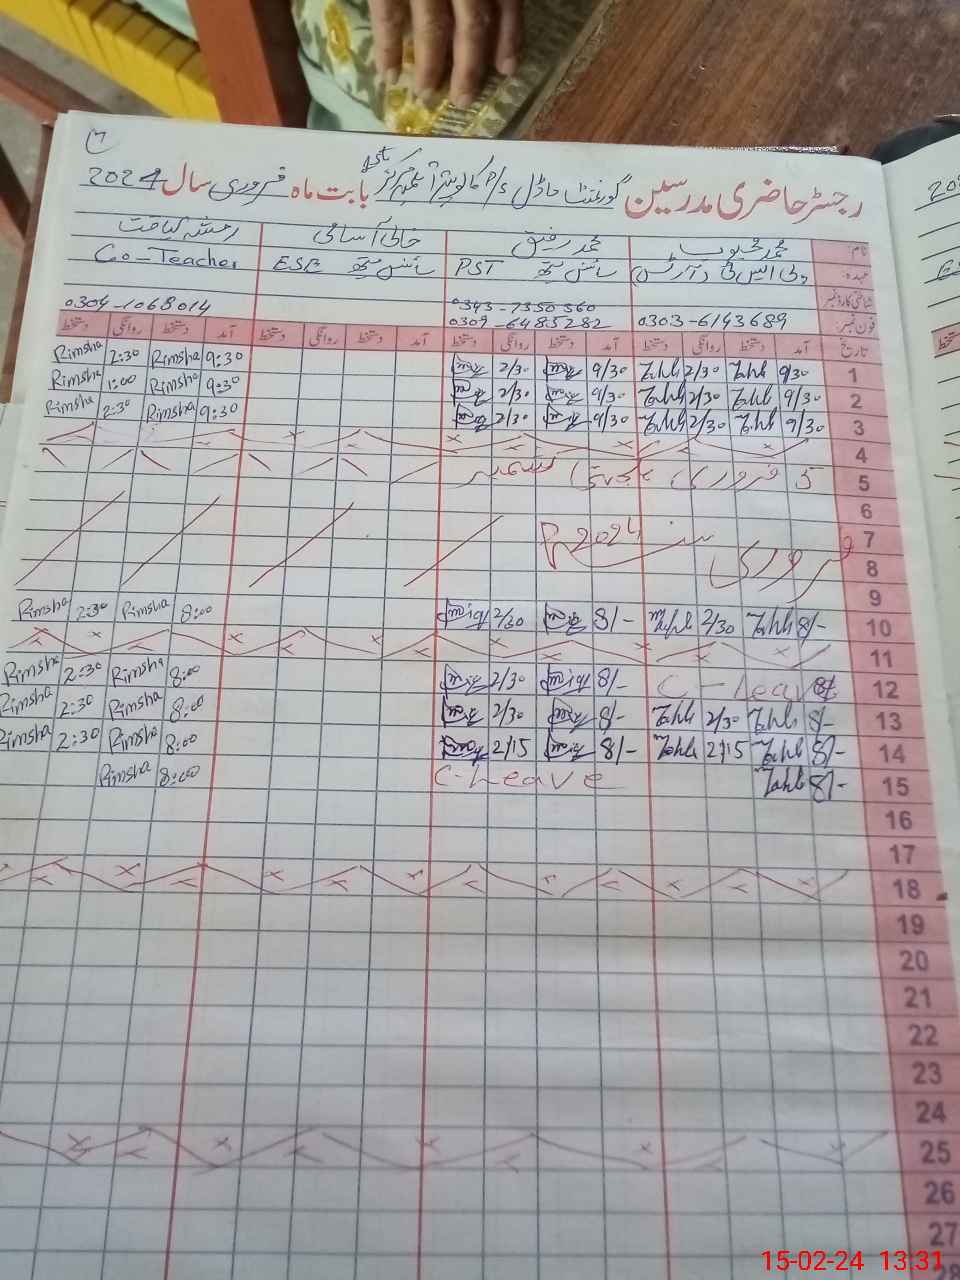 رجسٹر حاضری مدرسین گورنمنٹ ماڈل P/S 1st بابت ماہ فروری سال 2024
نام: محمد محبوب محمد رفیق خالی آسامی رمشہ لیاقت
عہدہ: پی ایس ٹی (آرٹس) سائنس میتھ PST سائنس میتھ ESE Co-Teacher
شناختی کارڈ نمبر 0343-7350560 0304-1068014
فون نمبر: 0303-6143689 0309-6485282
تاریخ آمد دستخط روانگی دستخط آمد دستخط روانگی دستخط آمد دستخط روانگی دستخط آمد دستخط روانگی دستخط
1 9/30 2/30 9/30 2/30 9:30 Rimsha 2:30 Rimsha
2 9/30 2/30 9/30 2/30 9:30 Rimsha 1:00 Rimsha
3 9/30 2/30 9/30 2/30 9:30 Rimsha 2:30 Rimsha
4
5 5 فروری کشمیر
6
7 2024
8 فروری
9
10 8/- 2/30 8/- 2/30 8:00 Rimsha 2:30 Rimsha
11
12 C-Leave 8/- 2/30 8:00 Rimsha 2:30 Rimsha
13 8/- 2/30 8/- 2/30 8:00 Rimsha 2:30 Rimsha
14 8/- 2/15 8/- 2/15 8:00 Rimsha 2:30 Rimsha
15 8/- C-Leave 8:00 Rimsha
16
17
18
19
20
21
22
23
24
25
26
27
28
15-02-24 13:31